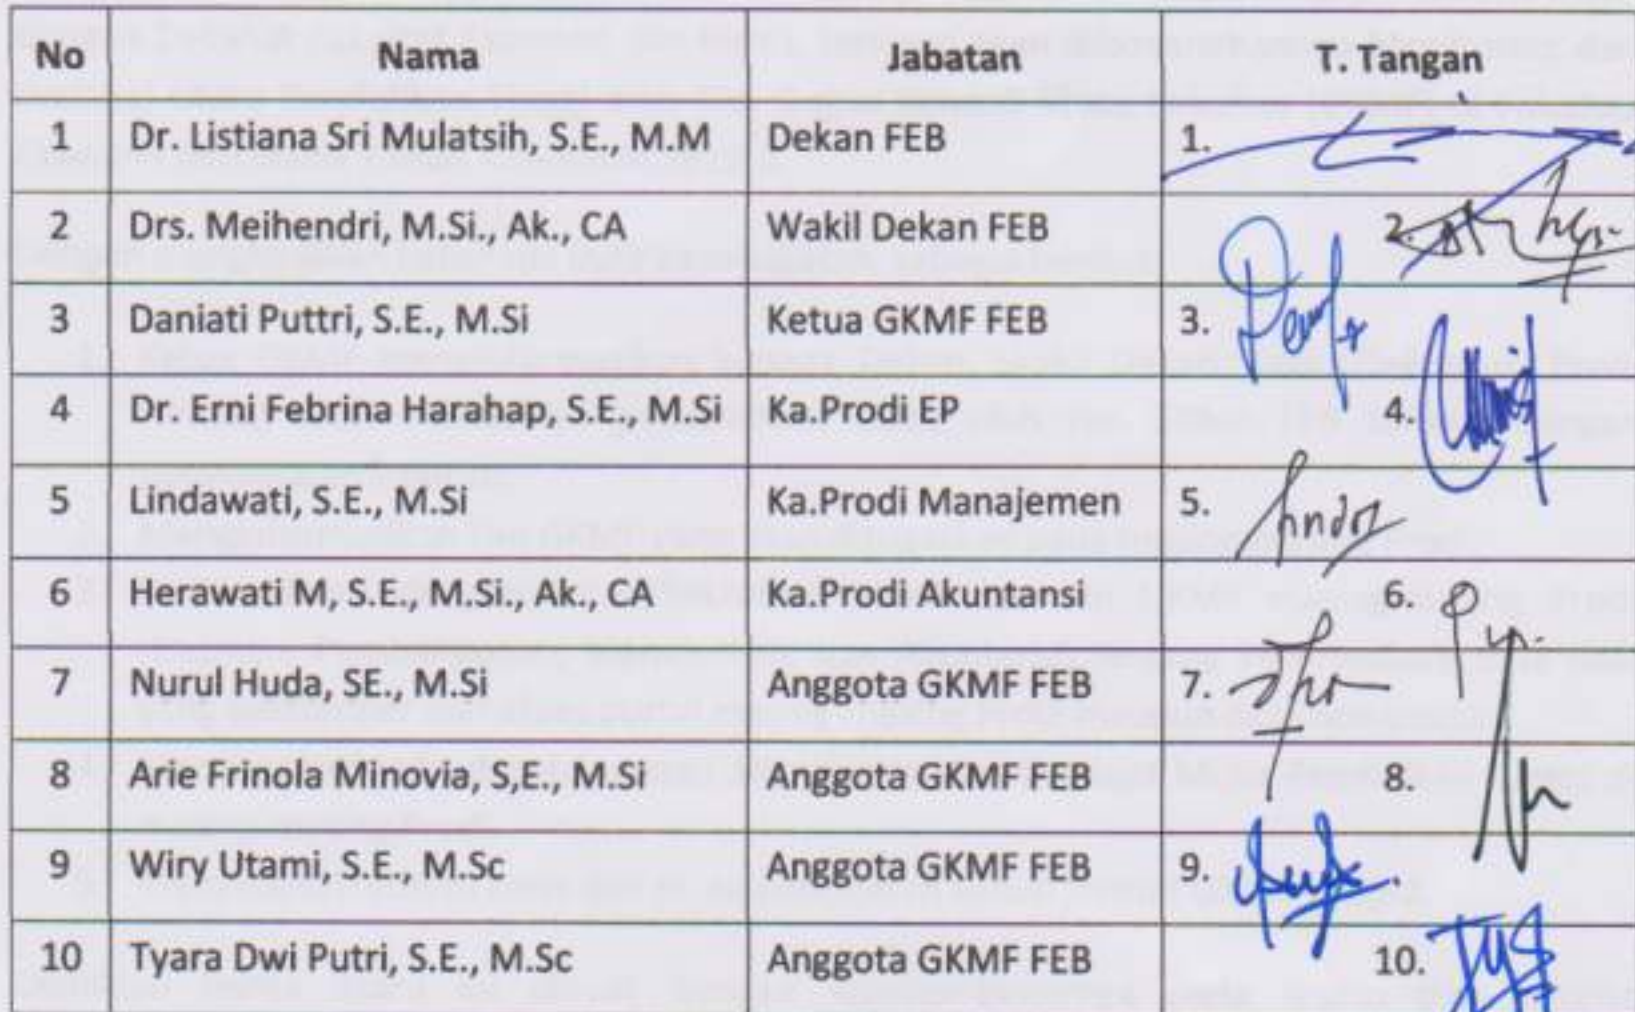 No Nama Jabatan T. Tangan
1 Dr. Listiana Sri Mulatsih, S.E., M.M Dekan FEB 1.
2 Drs. Meihendri, M.Si., Ak., CA Wakil Dekan FEB 2.
3 Daniati Puttri, S.E., M.Si Ketua GKMF FEB 3.
4 Dr. Erni Febrina Harahap, S.E., M.Si Ka.Prodi EP 4.
5 Lindawati, S.E., M.Si Ka.Prodi Manajemen 5.
6 Herawati M, S.E., M.Si., Ak., CA Ka.Prodi Akuntansi 6.
7 Nurul Huda, SE., M.Si Anggota GKMF FEB 7.
8 Arie Frinola Minovia, S,E., M.Si Anggota GKMF FEB 8.
9 Wiry Utami, S.E., M.Sc Anggota GKMF FEB 9.
10 Tyara Dwi Putri, S.E., M.Sc Anggota GKMF FEB 10.